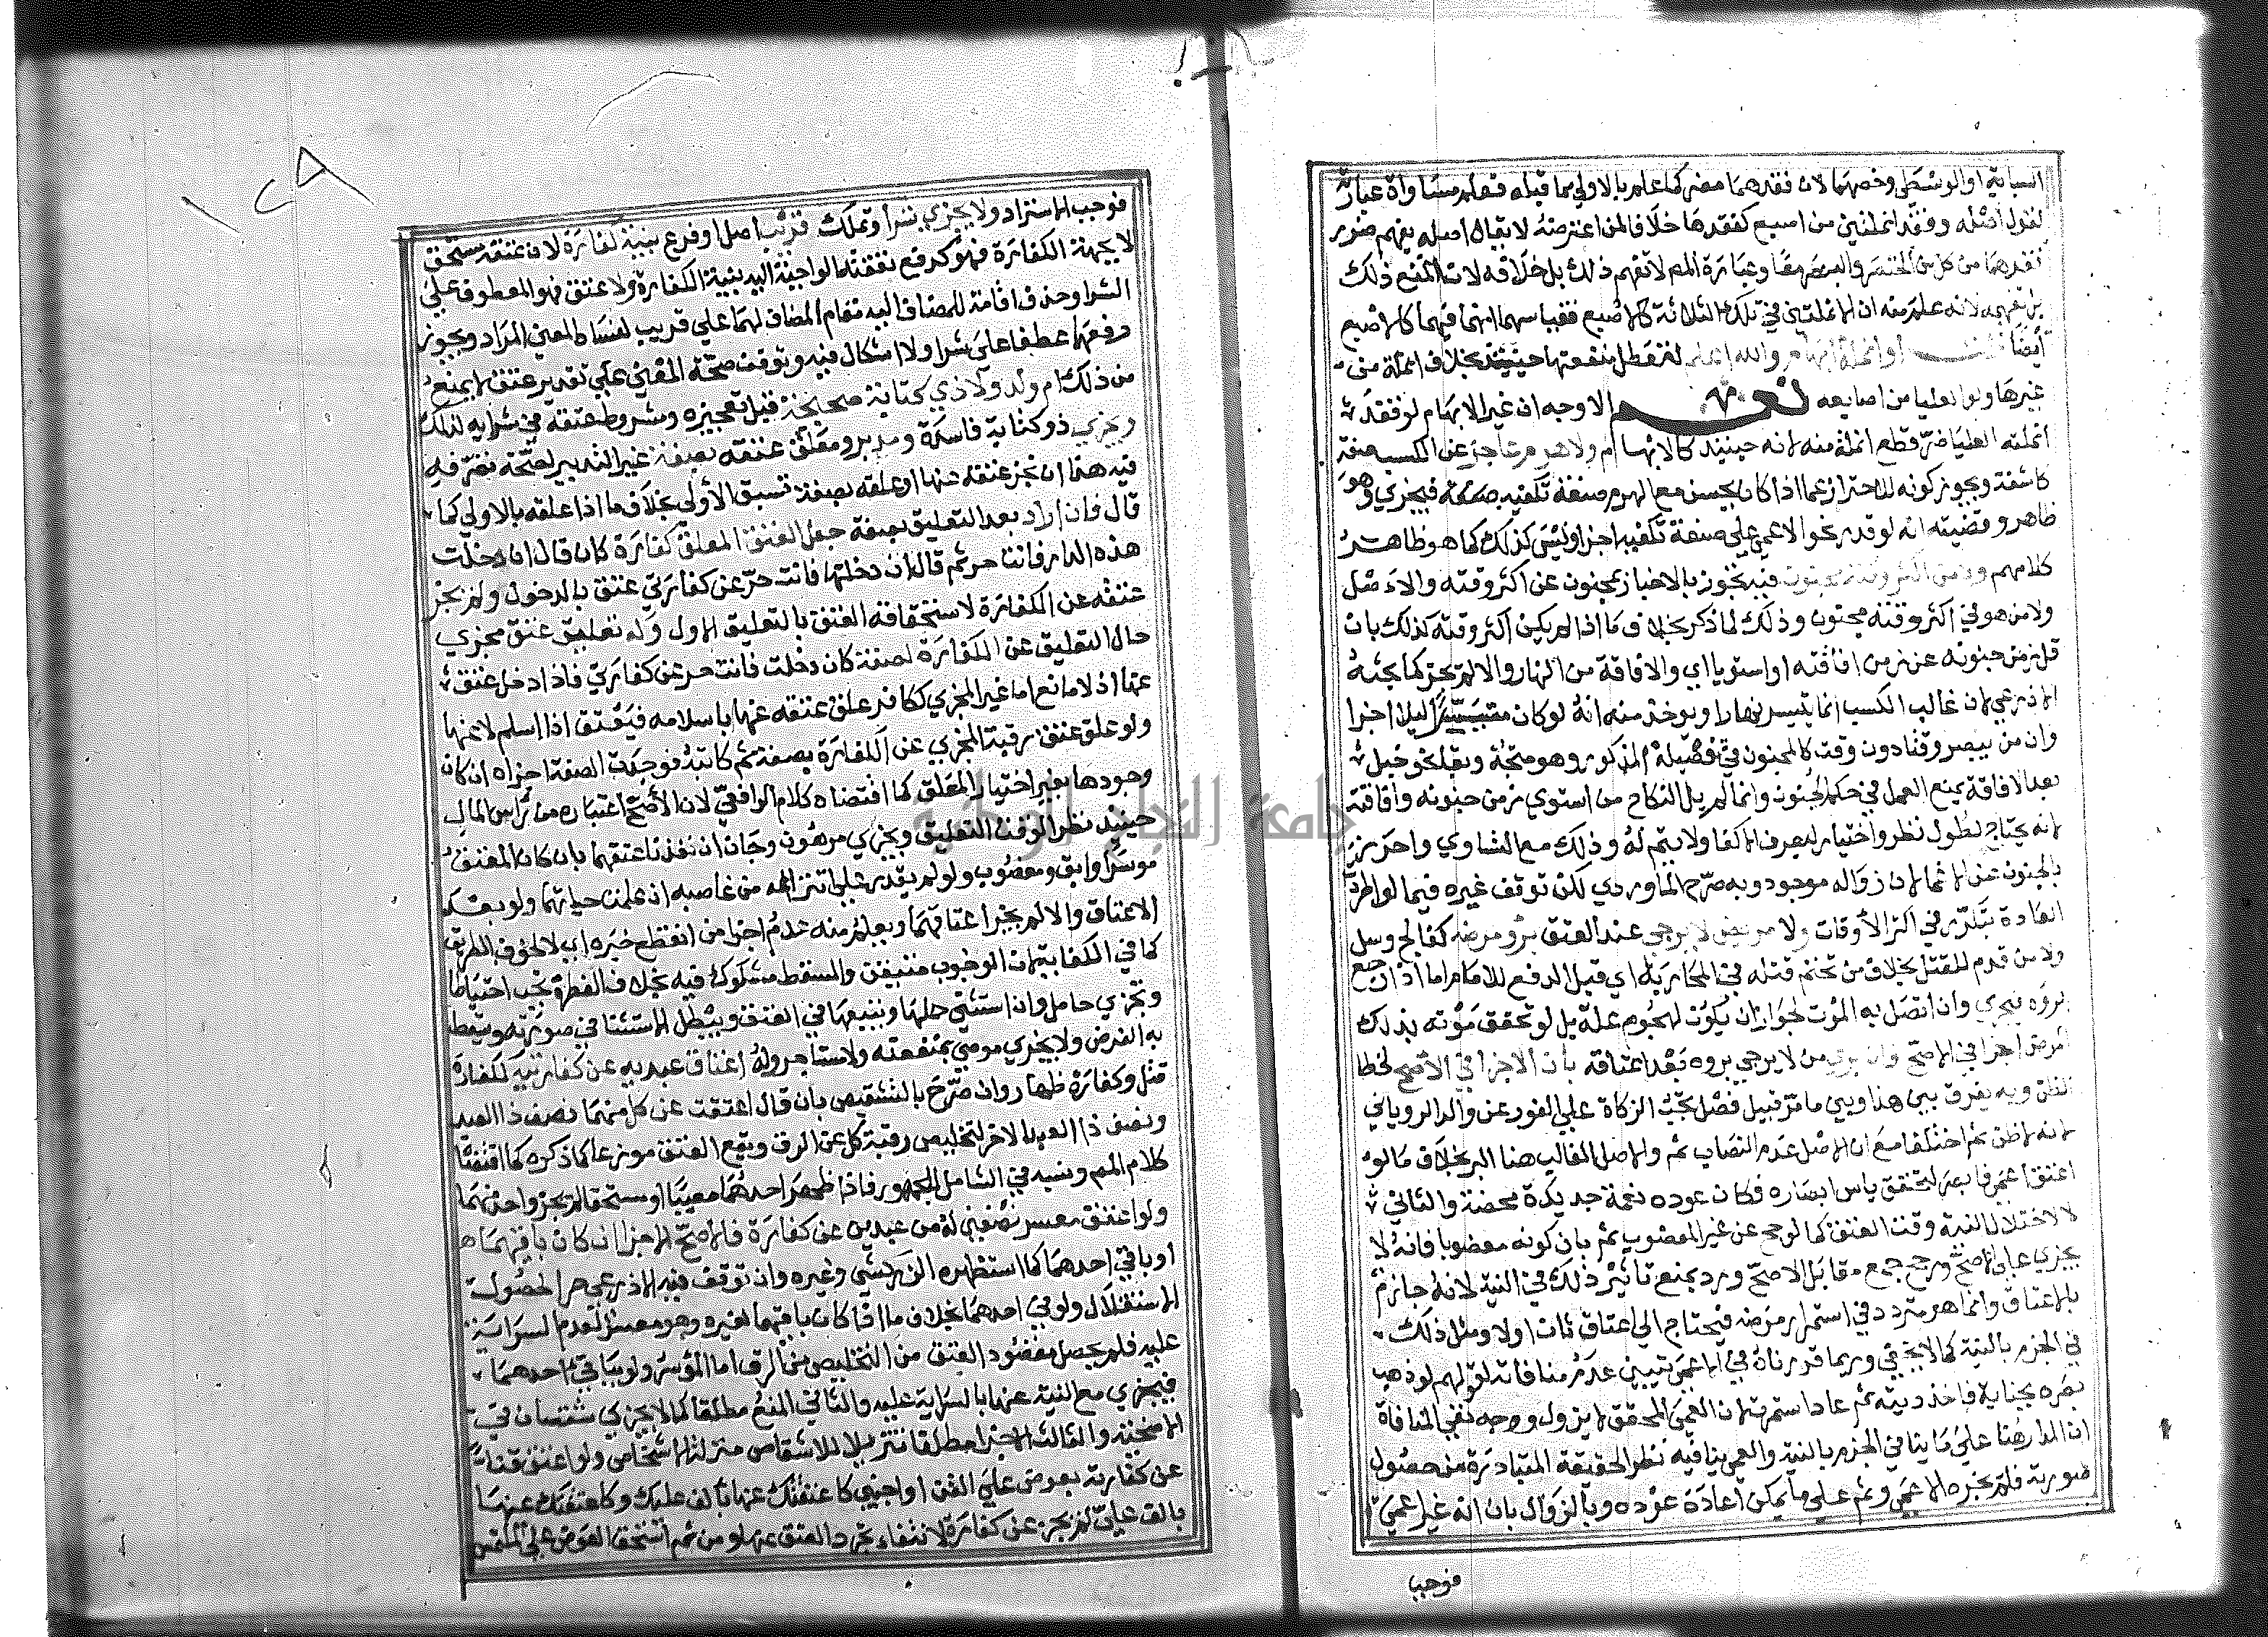 السبابة او الوسطى وخصهما لان فقدهما مضر كما علم بالاولى مما قبله فعلم مساواة عبارته
لقول اصله وفقد انملتين من اصبع كفقدها خلافا لمن اعترضه لا يقال اصله يفهم ضرر
فقدهما من كل من الخنصر والبنصر معا وعبارة المص لا تفهم ذلك بل خلافه لانا نمنع ذلك
بل تفهمه لانه علم منه ان الانملتين في تلك الثلاثة كالاصبع فقياسهما انهما فيهما كالاصبع
ايضا او انملة ابهام والله اعلم لتعطل منفعتها حينئذ بخلاف انملة من
غيرها ولو العليا من اصابعه نعم الاوجه ان غير الابهام لو فقدت
انملته العليا ضر قطع انملة منه لانه حينئذ كالابهام ولا هرم عاجز عن الكسب صفة
كاشفة ويجوز كونه للاحتراز عما اذا كان يحسن مع الهرم صنعة تكفيه فيجزي وهو
ظاهر وقضيته انه لو قدر نحو الاعمى على صنعة تكفيه اجزا وليس كذلك كما هو ظاهر
كلامهم ولا من اكثر وقته مجنون فيه تجوز بالاخبار بمجنون عن اكثر وقته والاصل
ولا من هو في اكثر وقته مجنون وذلك لما ذكر بخلاف ما اذا لم يكن اكثر وقته كذلك بان
قل زمن جنونه عن زمن افاقته او استويا اي والافاقة من النهار والا لم يجز كما بحثه
الاذرعي لان غالب الكسب انما يتيسر نهارا ويوخذ منه انه لو كان متيسرا ليلا اجزا
وان من يبصر وقتا دون وقت كالمجنون في تفصيله المذكور وهو متجه وبقا نحو خبل
بعد الافاقة يمنع العمل في حكم الجنون وانما لم يل النكاح من استوى زمن جنونه وافاقته
لانه يحتاج لطول نظر واختبار ليعرف الاكفا ولا يتم له وذلك مع التساوي واحترز
بالجنون عن الاغما لان زواله موجود وبه صرح الماوردي لكن توقف غيره فيما لو اطردت
العادة بتكرره في اكثر الاوقات ولا مريض لا يرجى عند العتق برؤ مرضه كفالج وسل
ولا من قدم للقتل بخلاف من تحتم قتله في المحاربة اي قبل الدفع للامام اما اذا رجي
بروه فيجزي وان اتصل به الموت لجواز ان يكون لهجوم علة بل لو تحقق موته بذلك
المرض اجزا في الاصح وان برئ من لا يرجى بروه بعد اعتاقه بان الاجزا في الاصح لخطا
الظن وبه يفرق بين هذا وبين ما مر قبيل فصل تجب الزكاة على الفور عن والد الروياني
لانه لا ظن ثم اختلفا مع ان الاصل عدم النصاب ثم والاصل الغالب هنا البر بخلاف ما لو
اعتق اعمى فابصر لتحقق ياس ابصاره فكان عوده نعمة جديدة محضة والثاني
لا لاختلال النية وقت العتق كما لو حج عن غير المعضوب ثم بان كونه معضوبا فانه لا
يجزي على الاصح ورجح جمع مقابل الاصح ورد بمنع تاثير ذلك في النية لانه جازم
بالاعتاق وانما هو متردد في استمرار مرضه فيحتاج الى اعتاق ثان او لا ومثل ذلك
في الجزم بالنية كما لا يخفى وربما قررناه في الاعمى تبين عدم منافاته لقولهم لو ذهب
بصره بجناية فاخذ ديته ثم عاد استمرت لان العمى المحقق لا يزول ووجه نفي المنافاة
ان المدار هنا على ما ينافي الجزم بالنية والعمى ينافيه نظرا لحقيقة المتبادرة من حصول
صورته فلم يجزه الاعمى وثم على ما يمكن اعادة عوده وبالزوال بان انه غير اعمى
فوجب
فوجب الاسترداد ولا يجزي شرا وتملك قريب اصل او فرع بنية كفارة لان عتقه مستحق
لا بجهة الكفارة فهو كدفع نفقته الواجبة اليه بنية الكفارة ولا عتق فهو المعطوف على
الشرا وحذف اقامة للمضاف اليه مقام المضاف لهما على قريب لفساد المعنى المراد ويجوز
رفعها عطفا على شرا ولا اشكال فيه وتوقف صحة المعنى على تقدير عتق لا يمنع
من ذلك ام ولد ولا ذي كتابة صحيحة قبل تعجيزه ومشروط عتقه في شرايه لذلك
ويجزي ذو كتابة فاسدة ومدبر ومعلق عتقه بصفة غير التدبير لصحة تصرفه
فيه هذا ان نجز عتقه عنها او علقه بصفة تسبق الاولى بخلاف ما اذا علقه بالاولى كما
قال فان اراد بعد التعليق بصفة جعل العتق المعلق كفارة كان قال ان دخلت
هذه الدار فانت حر ثم قال ان دخلتها فانت حر عن كفارتي عتق بالدخول ولم يجز
عتقه عن الكفارة لاستحقاقه العتق بالتعليق الاول وله تعليق عتق مجزي
حال التعليق عن الكفارة لصفة كان دخلت فانت حر عن كفارتي فاذا دخل عتق
عنها اذ لا مانع اما غير المجزي ككافر علق عتقه عنها باسلامه فيعتق اذا اسلم لا عنها
ولو علق عتق رقبة المجزي عن الكفارة بصفة ثم كاتبه فوجدت الصفة اجزاه ان كان
وجودها بغير اختيار المعلق كما اقتضاه كلام الرافعي لان الاصح اعتباره من راس المال
حينئذ نظرا لوقت التعليق ويجزي مرهون وجان ان نفذنا عتقهما بان كان المعتق
موسرا وابق ومغصوب ولو لم يقدر على انتزاعه من غاصبه ان علمت حياتهما ولو بعد
الاعتاق والا لم يجز اعتاقهما ويعلم منه عدم اجزا من انقطع خبره اي لا لخوف الطريق
كما في الكفاية لان الوجوب متيقن والمسقط مشكوك فيه بخلاف الفطرة تجب احتياطا
وتجزي حامل وان استثنى حملها ويتبعها في العتق ويبطل الاستثنا في صورته ويسقط
به الفرض ولا يجزي موصى بمنفعته ولا مستاجر وله اعتاق عبديه عن كفارتيه ككفارة
قتل وكفارة ظهار وان صرح بالتشقيص بان قال اعتقت عن كل منهما نصف ذا العبد
ونصف ذا العبد الاخر لتخليص رقبة كل عن الرق ويقع العتق موزعا كما ذكره كما اقتضاه
كلام المص ونسبه في الشامل للجمهور فاذا ظهر احدهما معيبا او مستحقا لم يجز واحد منهما
ولو اعتق معسر نصفين له من عبدين عن كفارة فالاصح الاجزا ان كان باقيهما حرا
او باقي احدهما كما استظهره الزركشي وغيره وان توقف فيه الاذرعي حرا لحصول
الاستقلال ولو في احدهما بخلاف ما اذا كان باقيهما لغيره وهو معسر لعدم السراية
عليه فلم يحصل مقصود العتق من التخليص من الرق اما الموسر ولو بباقي احدهما
فيجزي مع النية عنها بالسراية عليه والثاني المنع مطلقا كما لا يجزي شقصان في
الاضحية والثالث الاجزا مطلقا تنزيلا للاشقاص منزلة الاشخاص ولو اعتق قنا
عن كفارته بعوض على القن او اجنبي كاعتقتك عنها بالف عليك وكاعتقتك عنها
بالف علي لم يجز عن كفارة لانتفاء تجرد العتق عنها ومن ثم استحق العوض على الملتمس